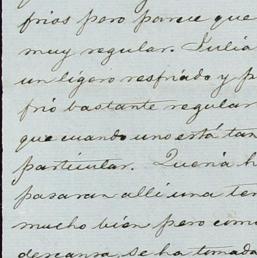 frios pero parece que
muy regular. Julia
un ligero resfriado y p
frio bastante regular
que cuando uno está tan
particular. Queria h
pasaran alli una tem
mucho bien pero como
descansa, se ha tomado